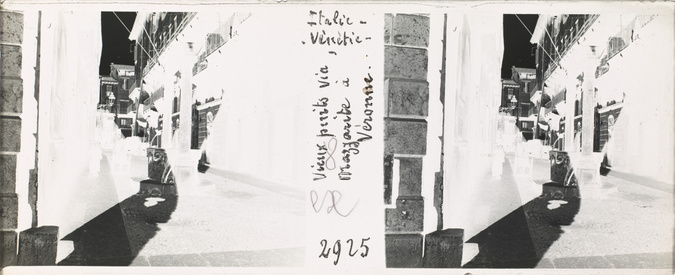 Italie -
Vénétie -
Vieux puits via
Mazzanti à
Vérone.
2925